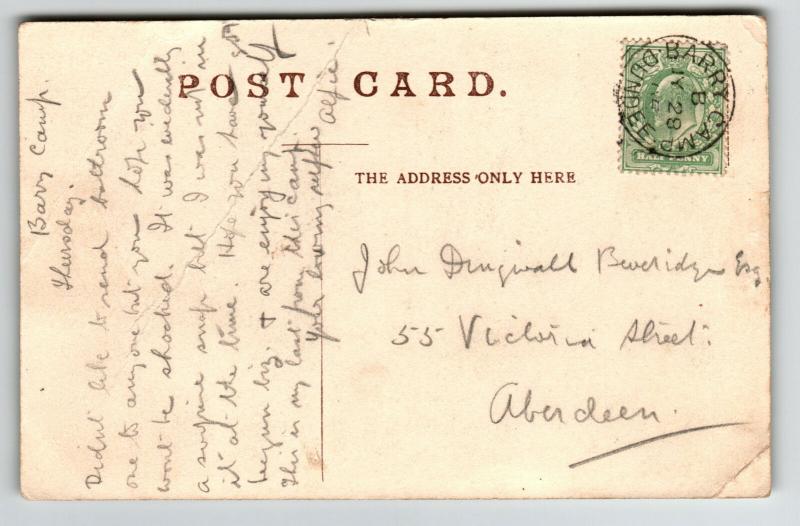 POST CARD.
THE ADDRESS ONLY HERE
BARRY CAMP
B
JY 28
DUNDEE
HALF PENNY
John Dingwall Beveridge Esq
55 Victoria Street.
Aberdeen.
Barry Camp.
Thursday.
Didn't like to send bathroom
one to anyone but you hope you
wont be shocked. It was evidently
a surprise snap but I was not in
it at the time. Hope you have got
begun biz. & are enjoying yourself
This is my last from this camp.
Your loving Alfie.